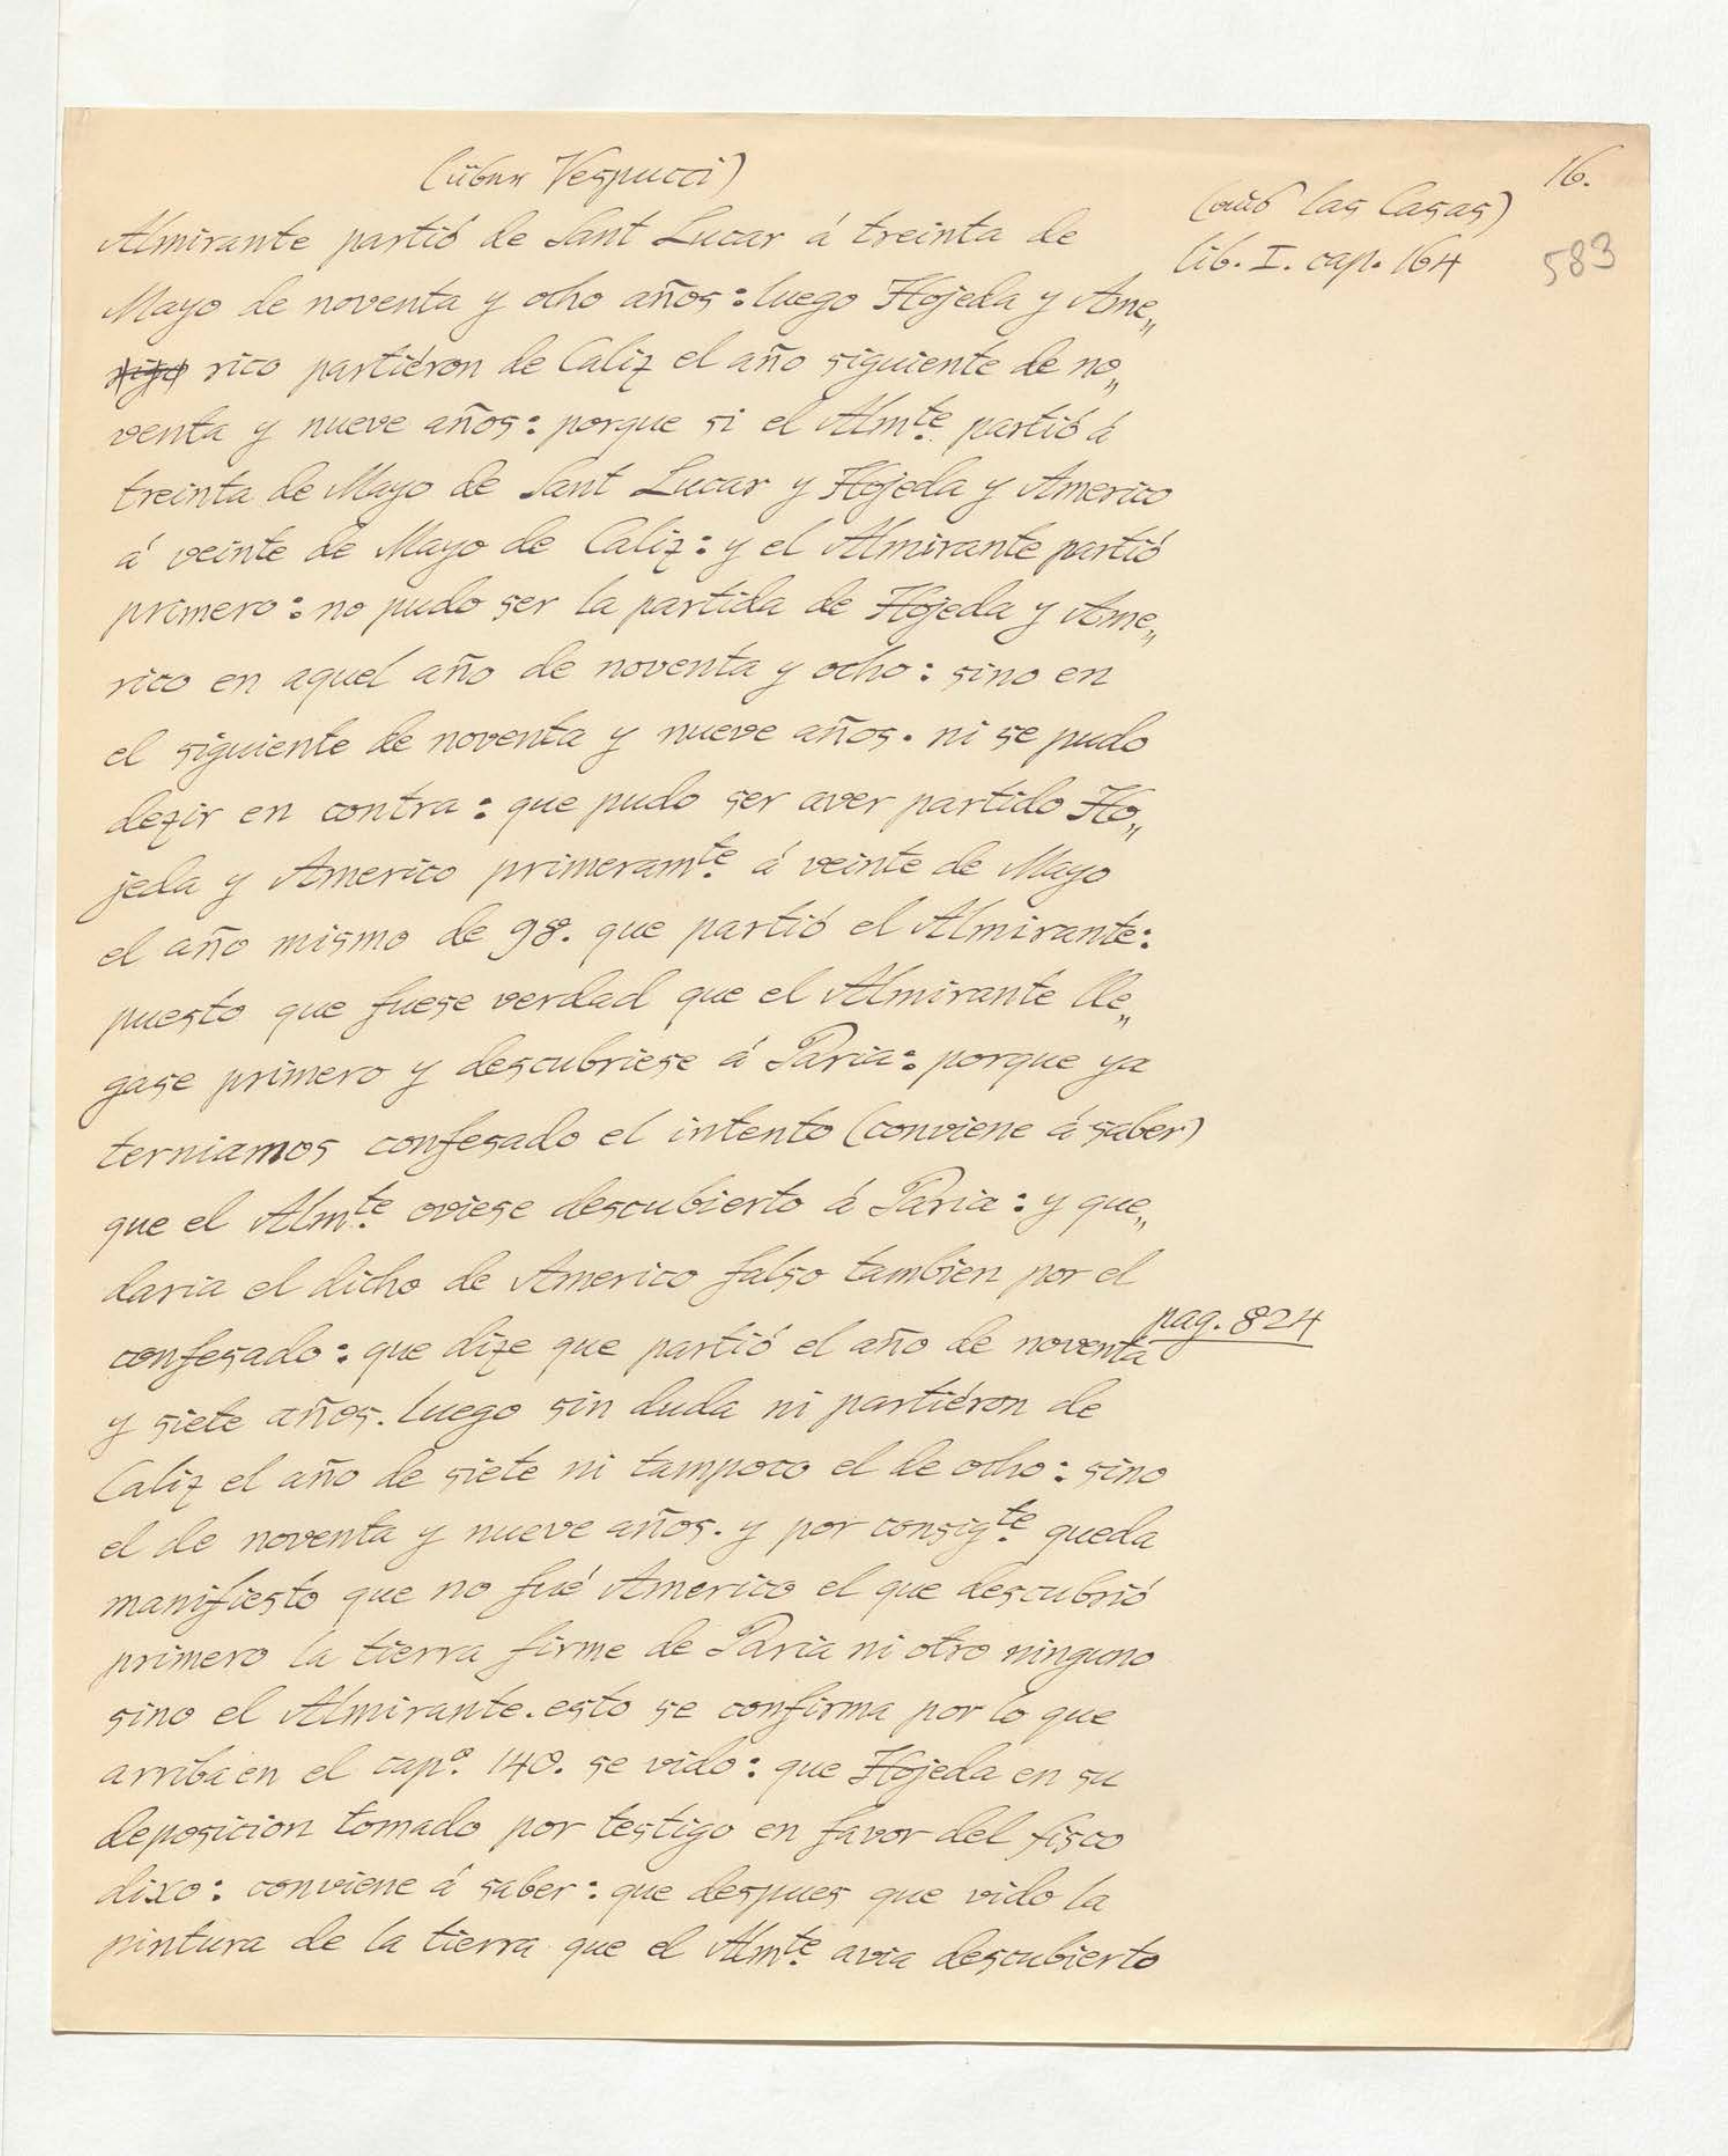 16.
(über Vespucci)
(aus las Casas)
lib. I. cap. 164
583
Almirante partió de Sant Lucar á treinta de
Mayo de noventa y ocho años: luego Hojeda y Ame„
rico partiéron de Caliz el año siguiente de no„
venta y nueve años: porque si el Almte. partió á
treinta de Mayo de Sant Lucar y Hojeda y Americo
á veinte de Mayo de Caliz: y el Almirante partió
primero: no pudo ser la partida de Hojeda y Ame„
rico en aquel año de noventa y ocho: sino en
el siguiente de noventa y nueve años. ni se pudo
dezir en contra: que pudo ser aver partido Ho„
jeda y Americo primeramte. á veinte de Mayo
el año mismo de 98. que partió el Almirante:
puesto que fuese verdad que el Almirante lle„
gase primero y descubriese á Paria: porque ya
terniamos confesado el intento (conviene á saber)
que el Almte. oviese descubierto á Paria: y que„
daria el dicho de Americo falso tambien por el
confesado: que dize que partió el año de noventa
pag. 824
y siete años. luego sin duda ni partiéron de
Caliz el año de siete ni tampoco el de ocho: sino
el de noventa y nueve años. y por consigte. queda
manifiesto que no fué Americo el que descubrió
primero la tierra firme de Paria ni otro ninguno
sino el Almirante. esto se confirma por lo que
arriba en el capo. 140. se vido: que Hojeda en su
deposicion tomado por testigo en favor del fisco
dixo: conviene á saber: que despues que vido la
pintura de la tierra que el Almte. avia descubierto